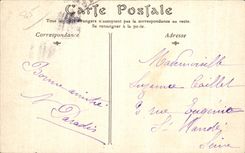 Carte Postale
Tous les pays étrangers n'acceptent pas la correspondance au recto.
Se renseigner à la poste.
Correspondance
Adresse
Bonne amitié
N. Paradis
Mademoiselle
Suzanne Caillet
3 rue Eugénie
St Mandé
Seine